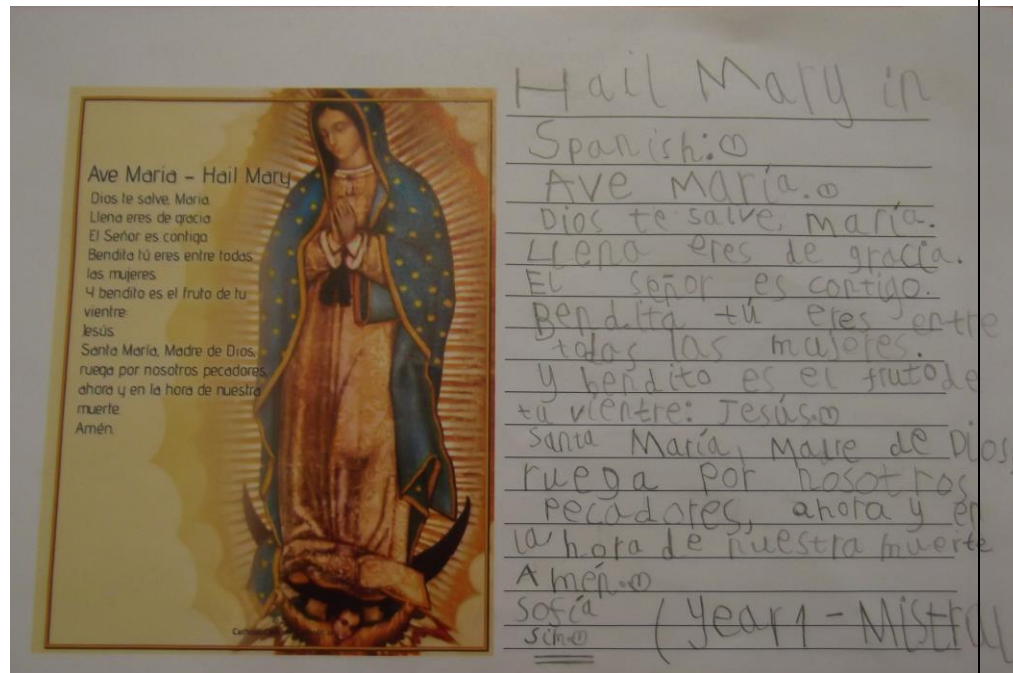 Ave Maria - Hail Mary
Dios te salve, Maria.
Llena eres de gracia
El Señor es contigo
Bendita tú eres entre todas
las mujeres.
Y bendito es el fruto de tu
vientre:
Jesús.
Santa María, Madre de Dios,
ruega por nosotros pecadores,
ahora y en la hora de nuestra
muerte.
Amén.
Hail Mary in
Spanish:
Ave María.
Dios te salve, maría.
Llena eres de gracia.
El señor es contigo.
Bendita tú eres entre
todas las mujeres.
y bendito es el fruto de
tu vientre: Jesús.
Santa María, Madre de Dios,
ruega por nosotros
pecadores, ahora y en
la hora de nuestra muerte
Amén.
Sofía
(Year 1 - Mistral